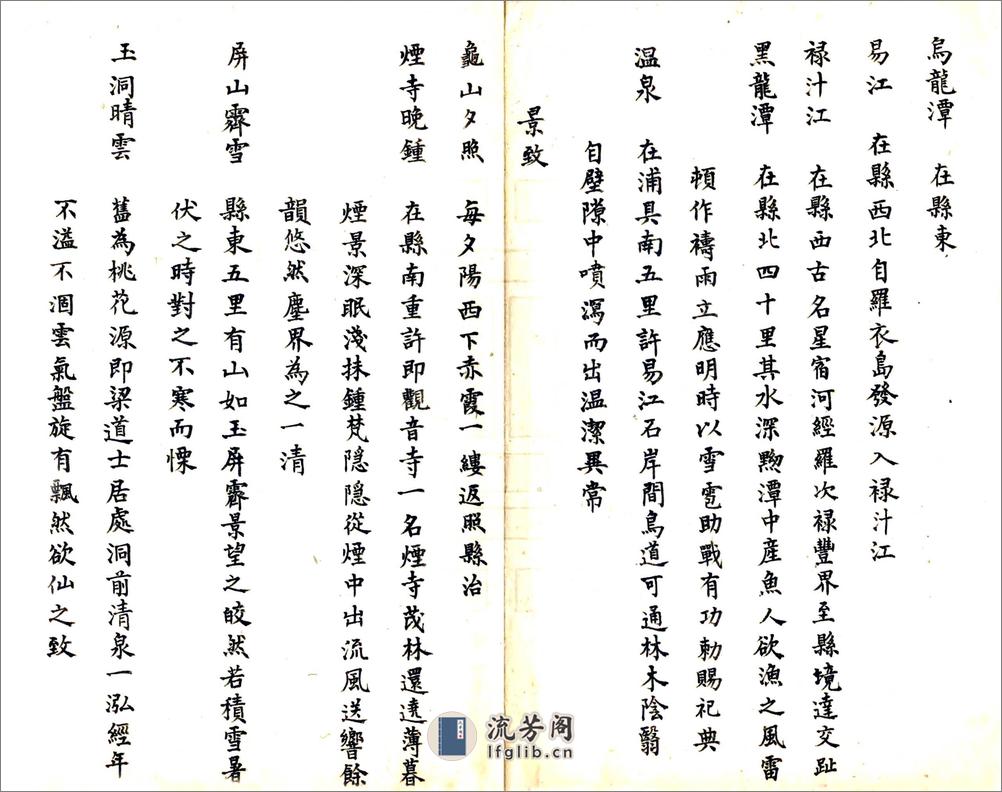 烏龍潭　在縣東
易江　在縣西北自羅衣島發源入禄汁江
禄汁江　在縣西古名星宿河經羅次禄豐界至縣境達交趾
黑龍潭　在縣北四十里其水深黝潭中産魚人欲漁之風雷
頓作禱雨立應明時以雪雹助戰有功勅賜祀典
温泉　在浦具南五里許易江石岸間鳥道可通林木陰翳
自壁隙中噴瀉而出温潔異常
景致
龜山夕照　每夕陽西下赤霞一縷返照縣治
煙寺晚鍾　在縣南重許即觀音寺一名煙寺茂林還遶薄暮
煙景深眠淺抹鍾梵隠隠從煙中出流風送響餘
韻悠然塵界為之一清
屏山霽雪　縣東五里有山如玉屏霽景望之皎然若積雪暑
伏之時對之不寒而慄
玉洞晴雲　舊為桃花源即梁道士居處洞前清泉一泓經年
不溢不涸雲氣盤旋有飄然欲仙之致
流芳阁
lfglib.cn